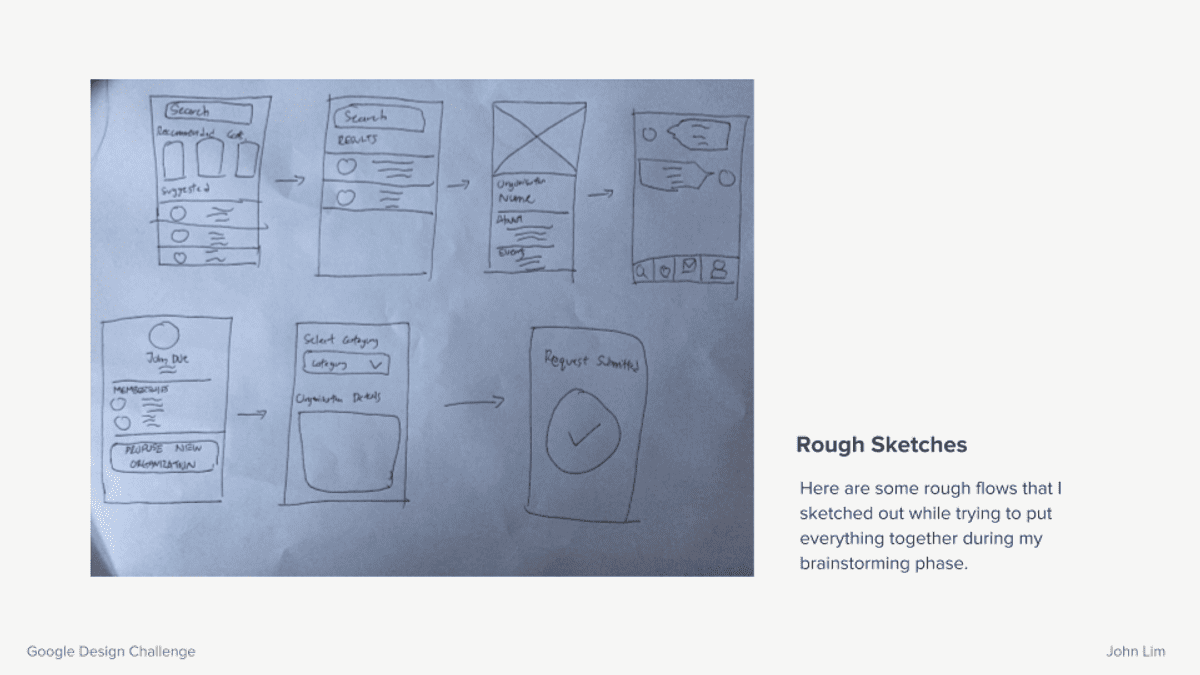 Search
Recommended
Suggested
Search
RESULTS
Organization
Name
About
Events
John Doe
MEMBERSHIPS
PROPOSE NEW
ORGANIZATION
Select Category
Category
Organization Details
Request Submitted
Rough Sketches
Here are some rough flows that I
sketched out while trying to put
everything together during my
brainstorming phase.
Google Design Challenge
John Lim